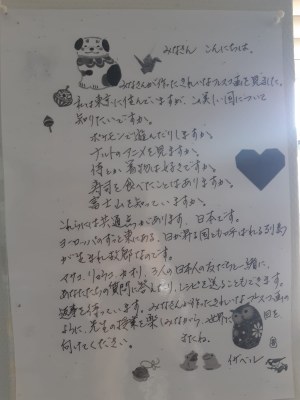 みなさん こんにちは。
みなさんが作ったきれいなフレスコ画を見ました。
私は東京に住んでいますが、この美しい国について
知りたいですか。
ポケモンで遊んだりしますか。
ナルトのアニメを見ますか。
着物は好きですか。
寿司を食べたことはありますか。
富士山を知っていますか。
これらには共通点があります、日本です。
ヨーロッパのずっと東にある、日が昇る国とも呼ばれる列島
が生まれ故郷なのです。
3人の日本人の友だちと一緒に、
あなたたちの質問に答えたり、レシピを送ることもできます。
返事を待っています。みなさんが作ったきれいなフレスコ画の
ように、先生の授業を楽しみながら、世界に目を
向けてください。
またね。
イザベル